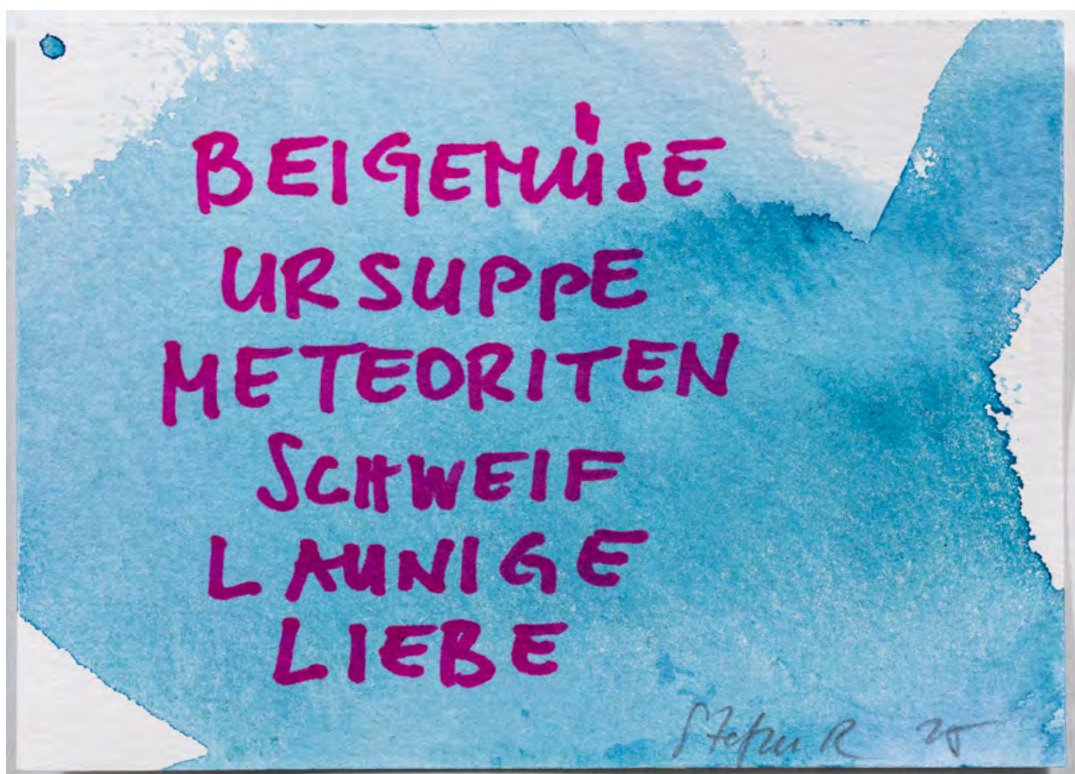 BEIGEMÜSE
URSUPPE
METEORITEN
SCHWEIF
LAUNIGE
LIEBE
R 25